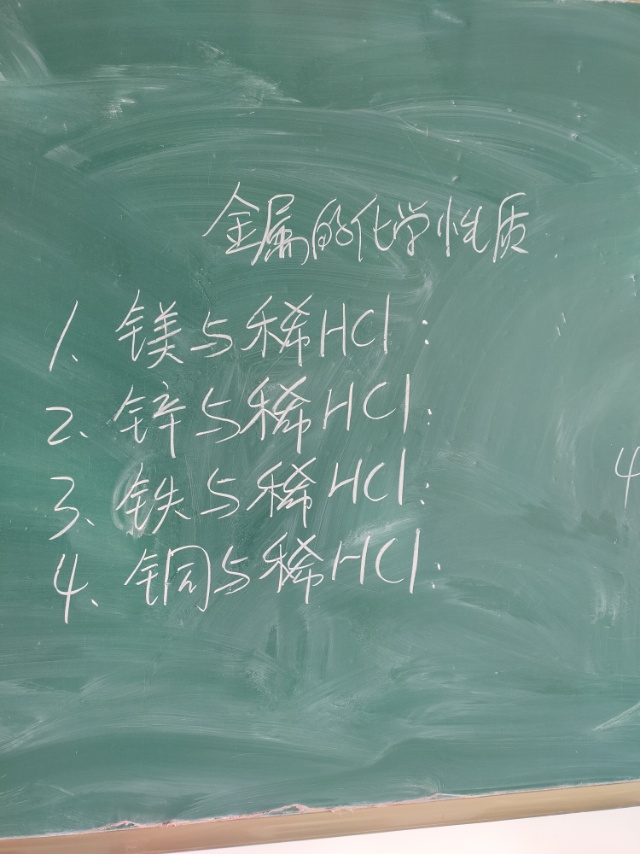 金属的化学性质
1、镁与稀HCl:
2、锌与稀HCl:
3、铁与稀HCl:
4、铜与稀HCl:
4